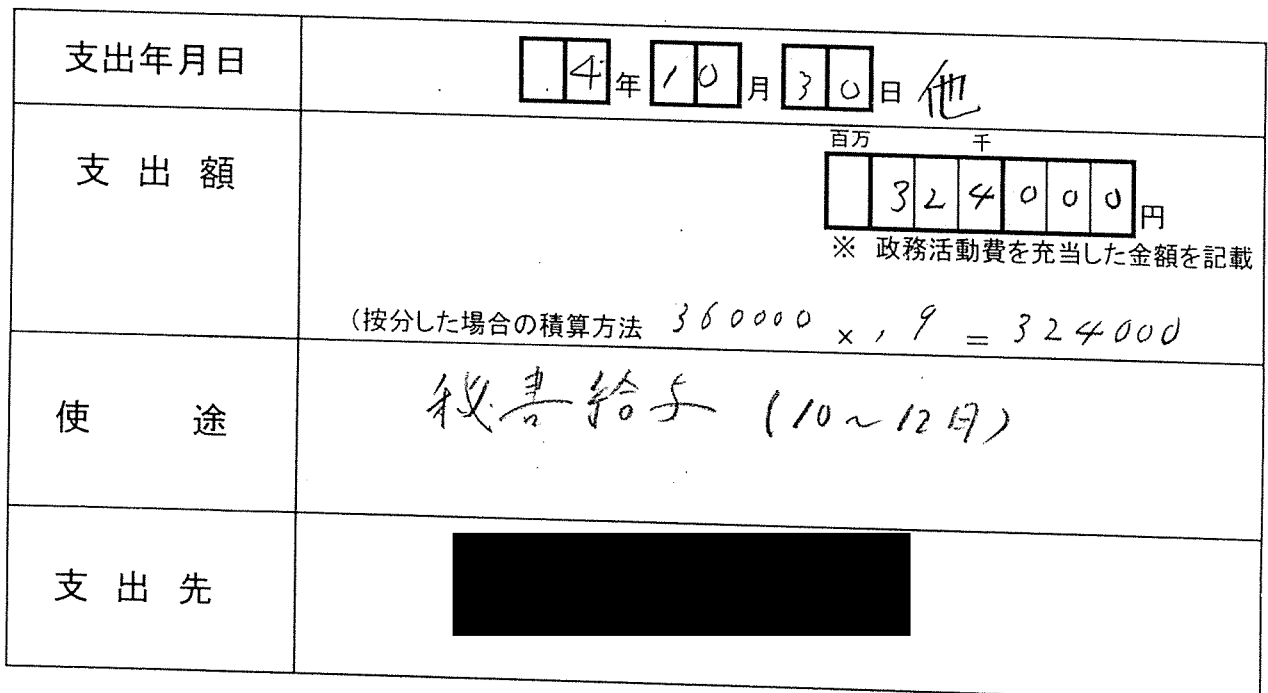 支出年月日 4年10月30日 他
支出額
百万 千
324000円
※ 政務活動費を充当した金額を記載
(按分した場合の積算方法 360000 × .9 = 324000
使途 秘書給与 (10~12月)
支出先